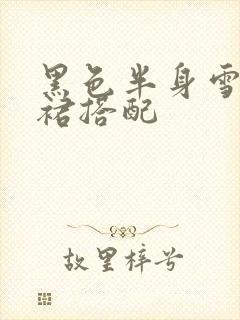 黑色半身雪
裙搭配
故里梓兮